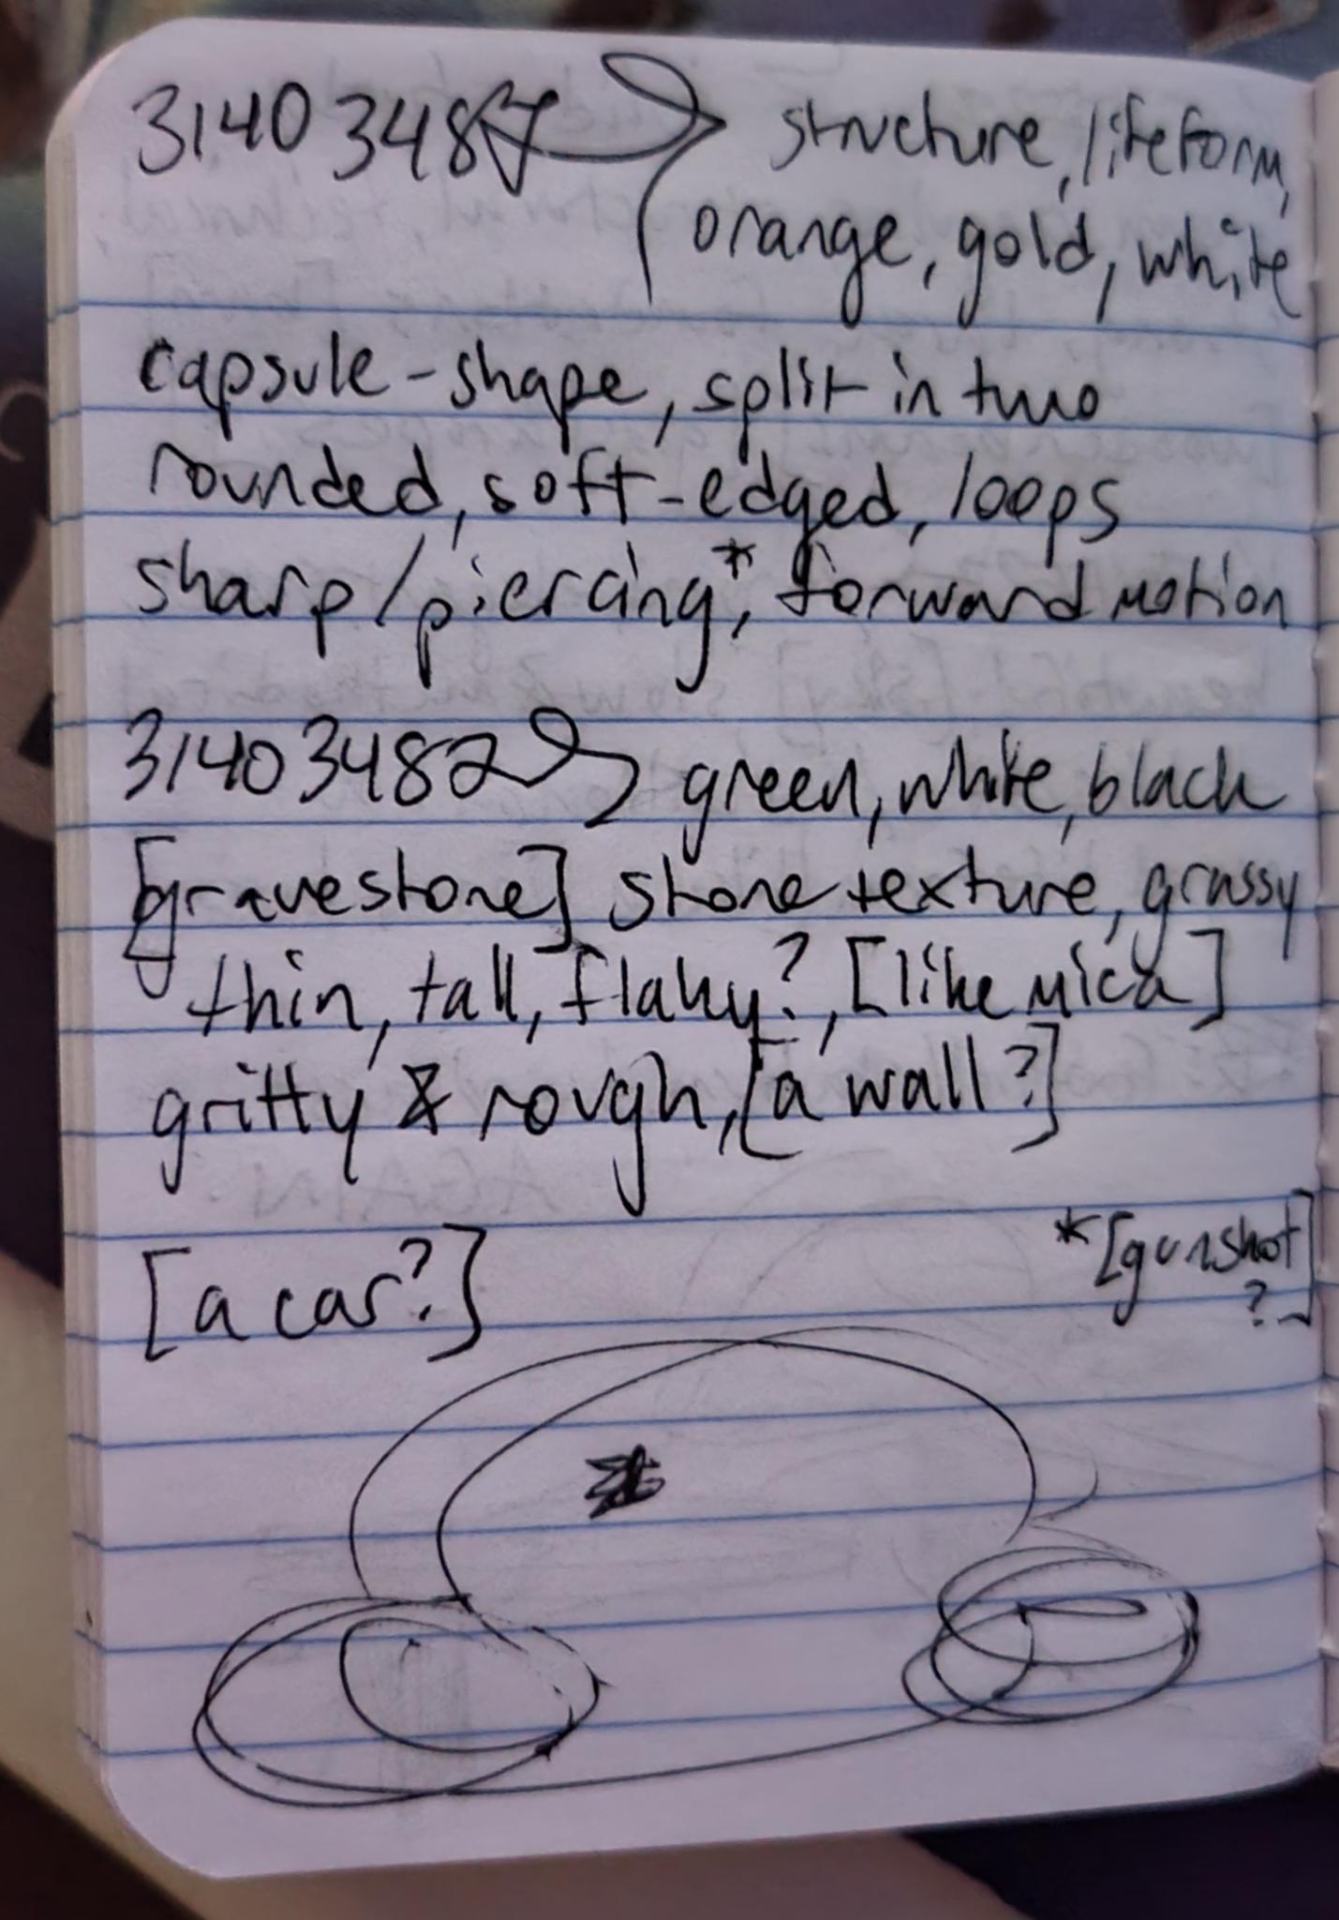 3140 3487 structure, lifeform,
orange, gold, white
capsule-shape, split in two
rounded, soft-edged, loops
sharp/piercing*, forward motion
3140 3482 green, white, black
[gravestone] stone texture, grassy
thin, tall, flaky?, [like mica]
gritty & rough, [a wall?]
[a car?]
*[gunshot
?]